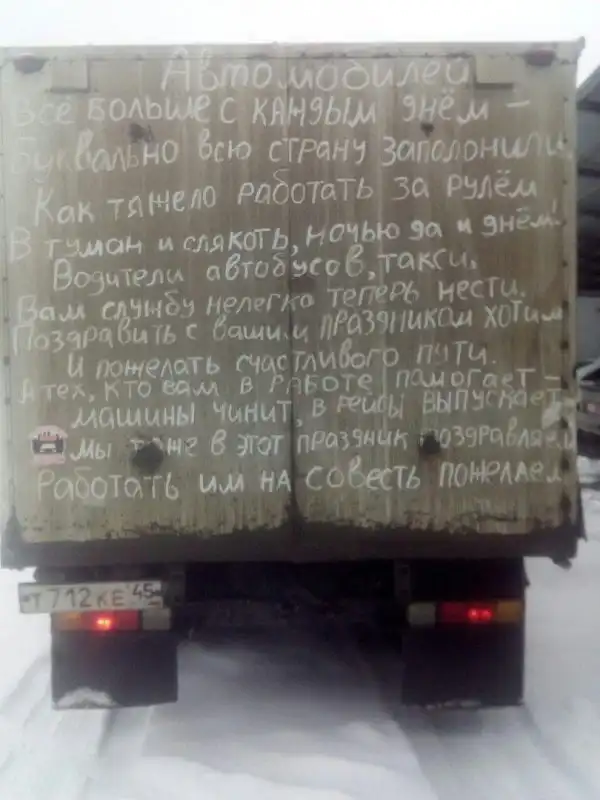 Автомобилей
Всё больше с каждым днём –
Буквально всю страну заполонили,
Как тяжело работать за рулём
В туман и слякоть, ночью да и днём!
Водители автобусов, такси,
Вам службу нелегко теперь нести.
Поздравить с вашим праздником хотим
И пожелать счастливого пути.
А тех, кто вам в работе памогает –
машины чинит, в рейсы выпускает,
мы тоже в этот праздник поздравляем
Работать им на совесть пожелаем
Т712КЕ 45